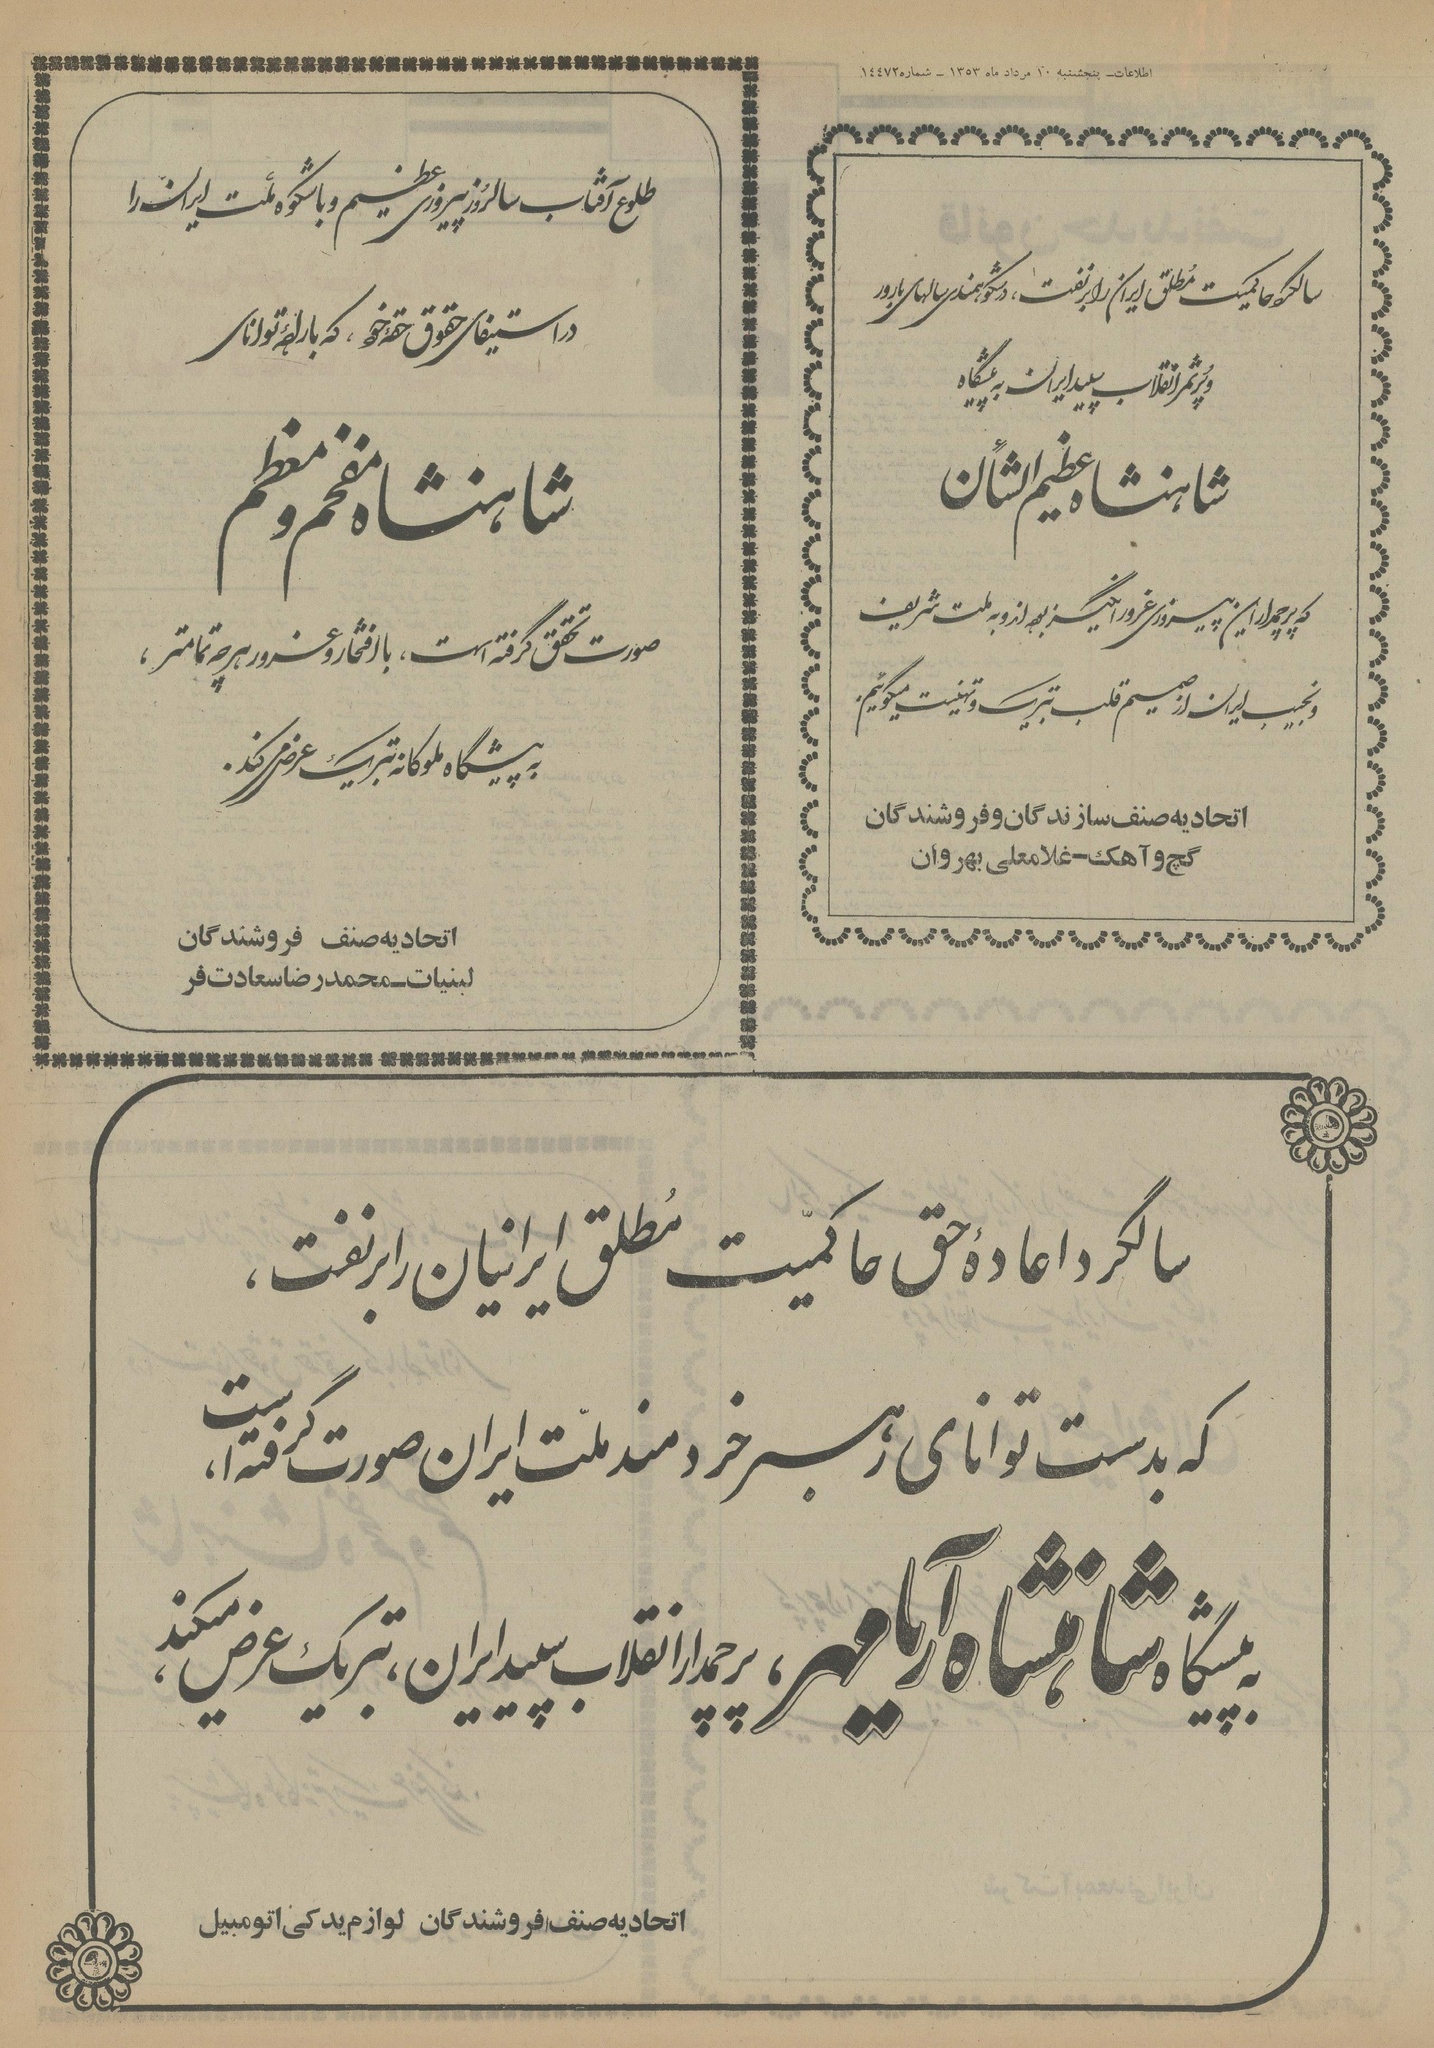 اطلاعات ـ پنجشنبه ۱۰ مرداد ماه ۱۳۵۳ ـ شماره ۱۴۴۷۲
سالگرد حاکمیت مُطلق ایران را بر نفت، در شکوهمندی سالهای بارور
و پُرثمر انقلاب سپید ایران به پیشگاه
شاهنشاه عظیم الشأن
که پرچمدار این پیروزی غرورانگیز بوده‌اند و به ملت شریف
و نجیب ایران از صمیم قلب تبریک و تهنیت میگوئیم.
اتحادیه صنف سازندگان و فروشندگان
گچ و آهک ـ غلامعلی بهروان
طلوع آفتاب سالروز پیروزی عظیم و باشکوه ملّت ایران را
در استیفای حقوق حقه خود، که با راهه توانای
شاهنشاه مفخم و معظم
صورت تحقق گرفته است، با افتخار و غرور هر چه تمامتر،
به پیشگاه ملوکانه تبریک عرض می‌کند.
اتحادیه صنف فروشندگان
لبنیات ـ محمدرضا سعادت فر
سالگرد اعادهٔ حق حاکمیّت مُطلق ایرانیان را بر نفت،
که بدست توانای رهبر خردمند ملّت ایران صورت گرفته است،
به پیشگاه شاهنشاه آریامهر، پرچمدار انقلاب سپید ایران، تبریک عرض میکند،
اتحادیه صنف فروشندگان لوازم یدکی اتومبیل